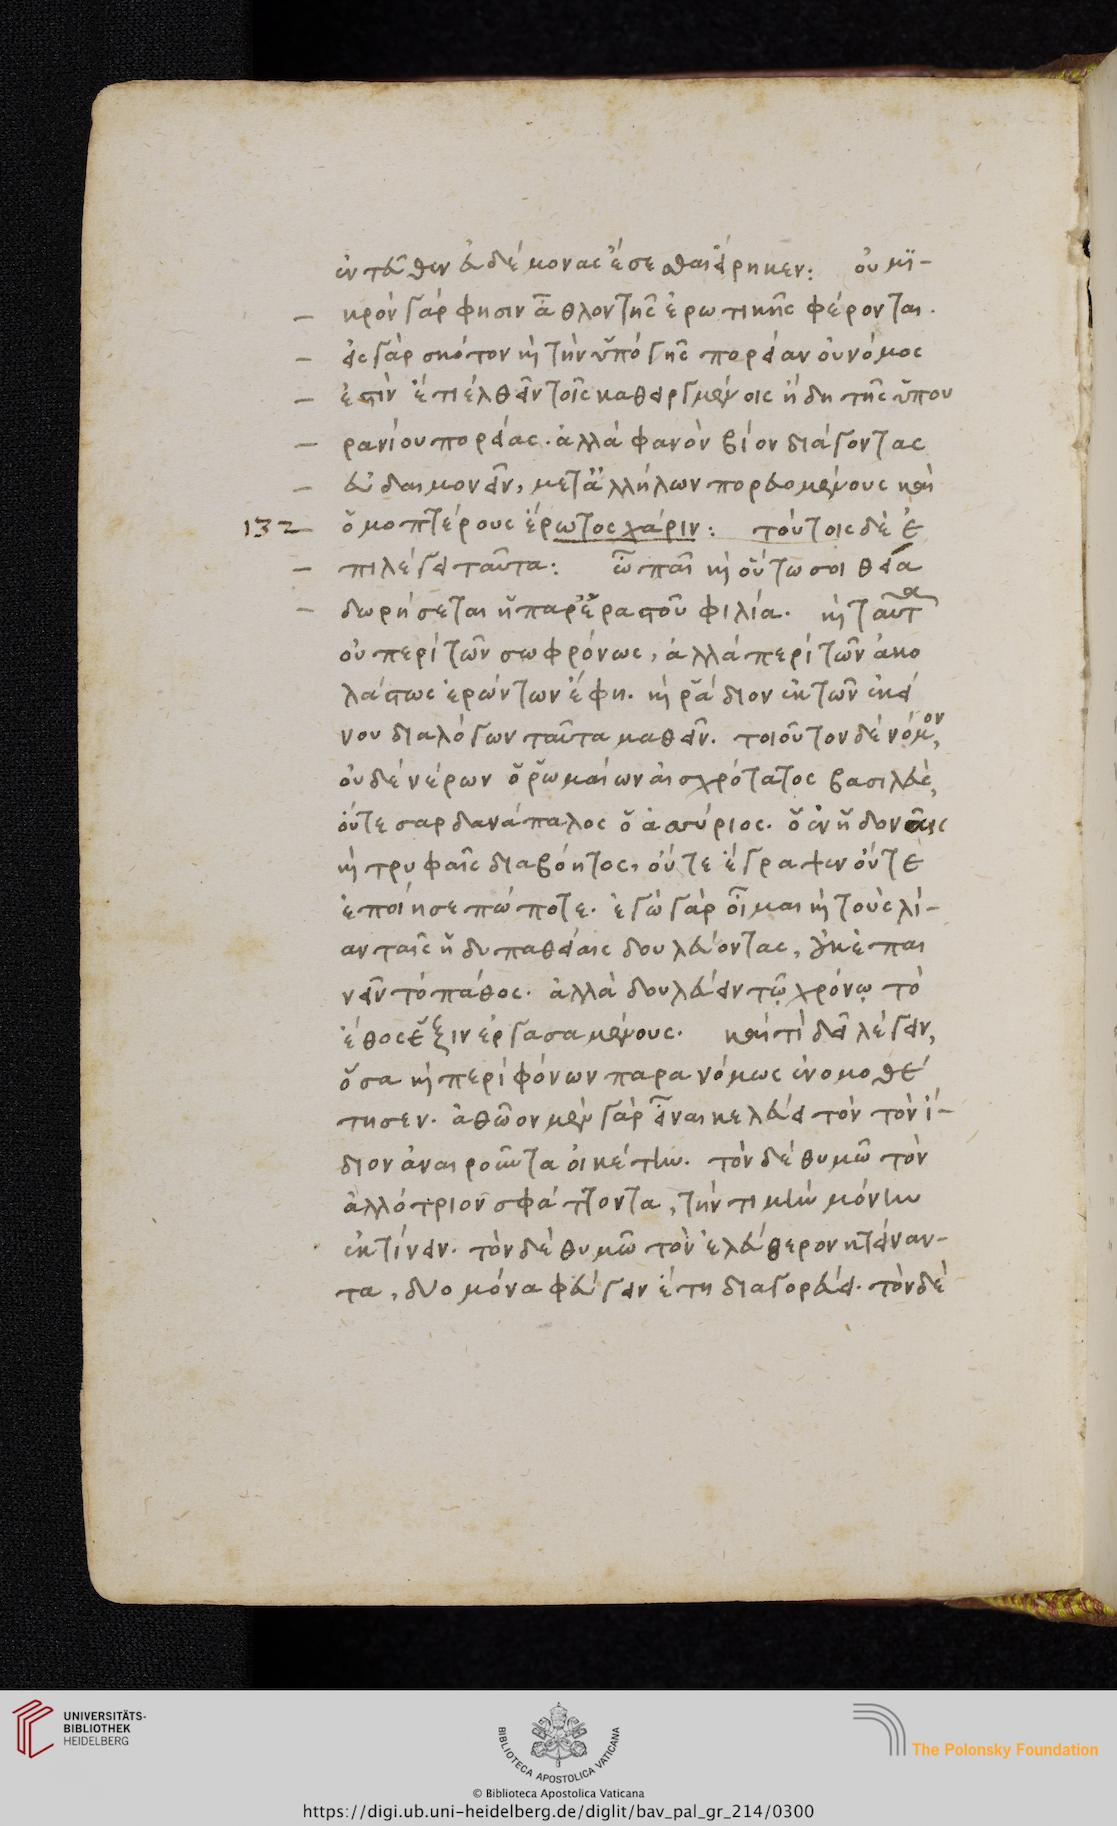 ἐνταῦθεν εὐδέμονας ἔσεσθαι εἴρηκεν: οὐ μι-
κρὸν γάρ φησιν ἆθλον τῆς ἐρωτικῆς φέρονται.
εἰς γὰρ σκότον καὶ τὴν ὑπὸ γῆς πορείαν οὐ νόμος
ἐστὶν ἔτι ἐλθεῖν τοῖς καθειργμένοις ἤδη τῆς ὑπου
ρανίου πορείας. ἀλλὰ φανὸν βίον διάγοντας
εὐδαιμονεῖν, μετ' ἀλλήλων πορευομένους καὶ
132 ὁμοπτέρους ἔρωτος χάριν: τούτοις δὲ ἐ
πιλέγει ταῦτα: ὦ παῖ καὶ οὕτω σοι θεῖα
δωρήσεται ἡ παρ' ἐραστοῦ φιλία. καὶ ταῦτα
οὐ περὶ τῶν σωφρόνως, ἀλλὰ περὶ τῶν ἀκο
λάστως ἐρώντων ἔφη. καὶ ῥάδιον ἐκ τῶν ἐκεί
νου διαλόγων ταῦτα μαθεῖν. τοιοῦτον δὲ νόμον,
οὐδὲ νέρων ὁ ῥωμαίων αἰσχρότατος βασιλεὺς,
οὔτε σαρδανάπαλος ὁ ἀσύριος. ὁ ἐν ἡδοναῖς
καὶ τρυφαῖς διαβόητος, οὔτε ἔγραψεν οὔτε
ἐποίησε πώποτε. ἐγὼ γὰρ οἶμαι καὶ τοὺς λί-
αν ταῖς ἡδυπαθείαις δουλεύοντας, οὐκ ἐπαι
νεῖν τὸ πάθος. ἀλλὰ δουλεύειν τῷ χρόνῳ τὸ
ἔθος ἕξιν ἐργασαμένους. καὶ τί δεῖ λέγειν,
ὅσα καὶ περὶ φόνων παρανόμως ἐνομοθέ
τησεν. ἀθῶον μὲν γὰρ εἶναι κελεύει τὸν τὸν ἴ-
διον ἀναιροῦντα οἰκέτην. τὸν δὲ θυμῶ τὸν
ἀλλότριον σφάττοντα, τὴν τιμὴν μόνην
ἐκτίνειν. τὸν δὲ θυμῶ τὸν ἐλεύθερον κτείναν-
τα, δύο μόνα φεύγειν ἔτη διαγορεύει. τὸν δὲ
UNIVERSITÄTS-
BIBLIOTHEK
HEIDELBERG
BIBLIOTECA APOSTOLICA VATICANA
The Polonsky Foundation
© Biblioteca Apostolica Vaticana
https://digi.ub.uni-heidelberg.de/diglit/bav_pal_gr_214/0300